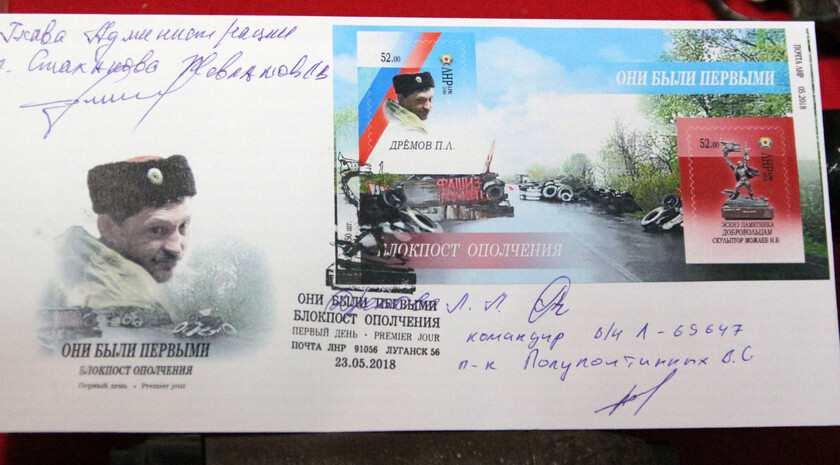 Глава Администрации
г. Стаханова Жевлаков С.В.
52.00
ЛНР
ДРЁМОВ П.Л.
ОНИ БЫЛИ ПЕРВЫМИ
ПОЧТА ЛНР 05.2018
52.00
ЛНР
ЭСКИЗ ПАМЯТНИКА
ДОБРОВОЛЬЦАМ
СКУЛЬПТОР МОЖАЕВ Н.В.
ФАШИЗ
БЛОКПОСТ ОПОЛЧЕНИЯ
ОНИ БЫЛИ ПЕРВЫМИ
БЛОКПОСТ ОПОЛЧЕНИЯ
Первый день • Premier jour
ОНИ БЫЛИ ПЕРВЫМИ
БЛОКПОСТ ОПОЛЧЕНИЯ
ПЕРВЫЙ ДЕНЬ • PREMIER JOUR
ПОЧТА ЛНР 91056 ЛУГАНСК 56
23.05.2018
Л. П.
командир в/ч Л-69647
п-к Полуполтинных В.С